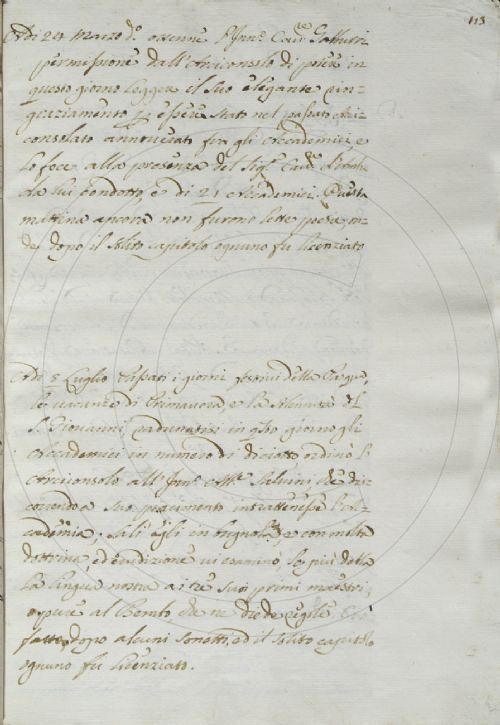 113
Adi 24 Marzo d.º ottenne l'Inn.º Cav.re Gatturri
permissione dall'Arciconsolo di poter in
questo giorno legger il suo elegante rin-
graziamento p essere stato nel passato Arci-
consolato annoverato fra gli Accademici, e
lo fece alla presenza del Sig.r Cav.r
da lui condotto, e di 21 Accademici. Questa
mattina ancora non furono lette poesie, on-
de dopo il solito capitolo ognuno fu licenziato
Adi 5 Luglio passati i giorni festivi della Pasqua,
le vacanze di Primavera, e la solennità di
S. Giovanni radunatisi in qsto giorno gli
Accademici in numero di diciotto ordinò l'
Arciconsolo all' Inn.º Ab.e Salvini, che di-
correndo a suo piacimento intrattenesse l'Ac-
cademia; Salì egli in bugnola, e con molta
dottrina, ed erudizione vi esaminò, se più della
la lingua nostra a i tre suoi primi maestri,
oppure al Bembo che ne diede regole
fatte, dopo alcuni sonetti, ed il solito capitolo
ognuno fu licenziato.